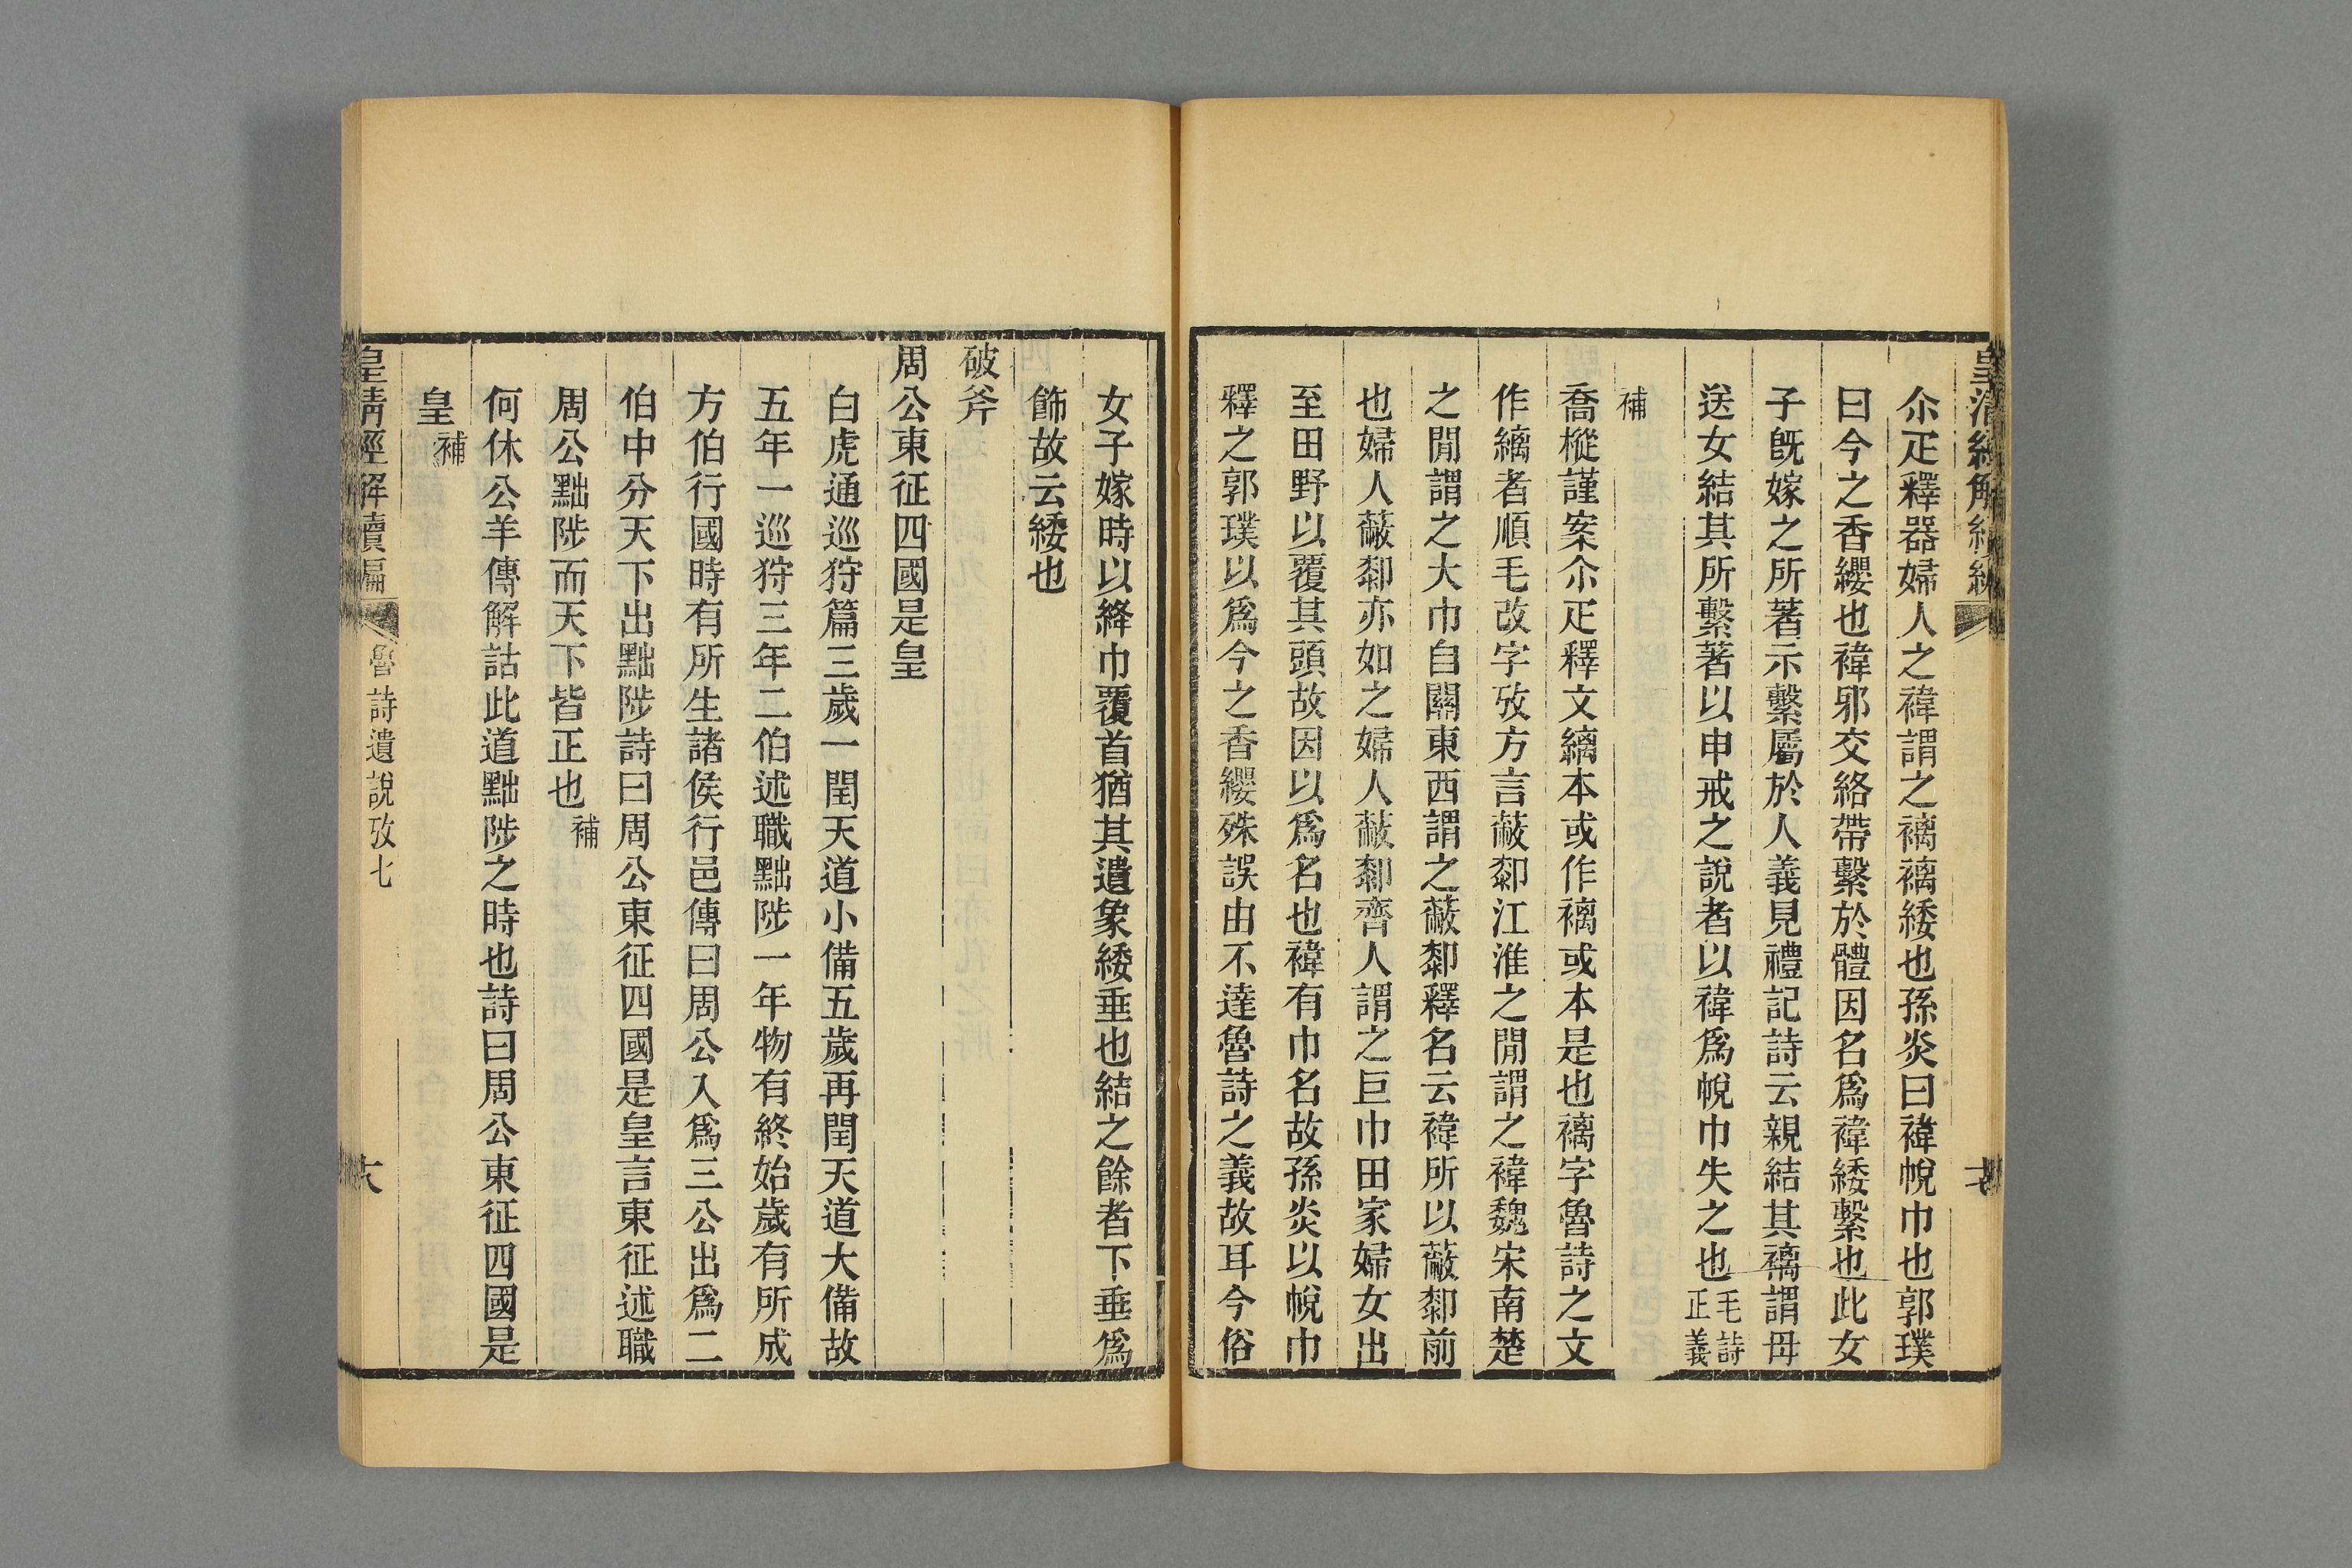 尒疋釋器婦人之褘謂之褵褵緌也孫炎曰褘帨巾也郭璞
曰今之香纓也褘邪交絡帶繫於體因名爲褘緌繫也此女
子旣嫁之所著示繫屬於人義見禮記詩云親結其褵謂母
送女結其所繫著以申戒之說者以褘爲帨巾失之也毛詩
正義
補
喬樅謹案尒疋釋文縭本或作褵或本是也褵字魯詩之文
作縭者順毛改字攷方言蔽厀江淮之閒謂之褘魏宋南楚
之閒謂之大巾自關東西謂之蔽厀釋名云褘所以蔽厀前
也婦人蔽厀亦如之婦人蔽厀齊人謂之巨巾田家婦女出
至田野以覆其頭故因以爲名也褘有巾名故孫炎以帨巾
釋之郭璞以爲今之香纓殊誤由不達魯詩之義故耳今俗
女子嫁時以絳巾覆首猶其遺象緌垂也結之餘者下垂爲
飾故云緌也
破斧
周公東征四國是皇
白虎通巡狩篇三歲一閏天道小備五歲再閏天道大備故
五年一巡狩三年二伯述職黜陟一年物有終始歲有所成
方伯行國時有所生諸侯行邑傳曰周公入爲三公出爲二
伯中分天下出黜陟詩曰周公東征四國是皇言東征述職
周公黜陟而天下皆正也補
何休公羊傳解詁此道黜陟之時也詩曰周公東征四國是
皇補
皇清經解續編 魯詩遺說攷七